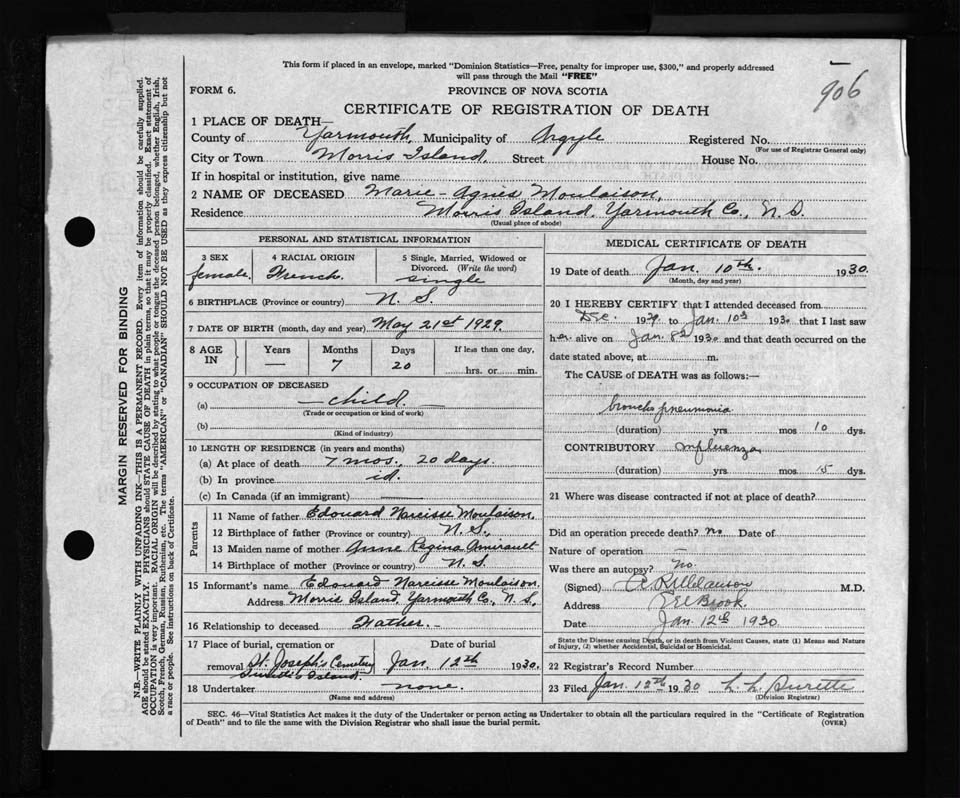 This form if placed in an envelope, marked "Dominion Statistics—Free, penalty for improper use, $300," and properly addressed
will pass through the Mail "FREE"
906
FORM 6.
PROVINCE OF NOVA SCOTIA
CERTIFICATE OF REGISTRATION OF DEATH
1 PLACE OF DEATH—
County of Yarmouth, Municipality of Argyle Registered No.
(For use of Registrar General only)
City or Town Morris Island, Street House No.
If in hospital or institution, give name
2 NAME OF DECEASED Marie-Agnès Moulaison,
Residence Morris Island, Yarmouth Co., N.S.
(Usual place of abode)
PERSONAL AND STATISTICAL INFORMATION
3 SEX female. 4 RACIAL ORIGIN French. 5 Single, Married, Widowed or Divorced. (Write the word) single
6 BIRTHPLACE (Province or country) N.S.
7 DATE OF BIRTH (month, day and year) May 21st 1929.
8 AGE IN Years — Months 7 Days 20 If less than one day, hrs. or min.
9 OCCUPATION OF DECEASED
(a) — child. —
(Trade or occupation or kind of work)
(b)
(Kind of industry)
10 LENGTH OF RESIDENCE (in years and months)
(a) At place of death 7 mos., 20 days.
(b) In province id.
(c) In Canada (if an immigrant) —
Parents
11 Name of father Edouard Narcisse Moulaison.
12 Birthplace of father (Province or country) N.S.
13 Maiden name of mother Anne Regina Amirault
14 Birthplace of mother (Province or country) N.S.
15 Informant's name Edouard Narcisse Moulaison.
Address Morris Island, Yarmouth Co., N.S.
16 Relationship to deceased Father. –
17 Place of burial, cremation or removal St. Joseph's Cemetery
Surette's Island.
Date of burial Jan. 12th 1930.
18 Undertaker none.
(Name and address)
MEDICAL CERTIFICATE OF DEATH
19 Date of death Jan. 10th. 1930.
(Month, day and year)
20 I HEREBY CERTIFY that I attended deceased from
Dec. 1929 to Jan. 10th 1930 that I last saw
her alive on Jan. 8th 1930 and that death occurred on the
date stated above, at m.
The CAUSE of DEATH was as follows:—
broncho pneumonia
(duration) yrs mos 10 dys.
CONTRIBUTORY influenza
(duration) yrs mos 5 dys.
21 Where was disease contracted if not at place of death?
Did an operation precede death? No Date of
Nature of operation —
Was there an autopsy? no.
(Signed) M.D.
Address Brook.
Date Jan. 12th 1930.
State the Disease causing Death, or in death from Violent Causes, state (1) Means and Nature
of Injury, (2) whether Accidental, Suicidal or Homicidal.
22 Registrar's Record Number
23 Filed Jan. 12th 1930 L. L. Surette
(Division Registrar)
SEC. 46—Vital Statistics Act makes it the duty of the Undertaker or person acting as Undertaker to obtain all the particulars required in the "Certificate of Registration
of Death" and to file the same with the Division Registrar who shall issue the burial permit.
(OVER)
MARGIN RESERVED FOR BINDING
N.B.—WRITE PLAINLY WITH UNFADING INK—THIS IS A PERMANENT RECORD. Every item of information should be carefully supplied.
AGE should be stated EXACTLY. PHYSICIANS should STATE CAUSE OF DEATH in plain terms, so that it may be properly classified. Exact statement of
OCCUPATION is very important. RACIAL ORIGIN will be described by stating to what people or tongue the deceased person belonged, whether English, Irish,
Scotch, French, German, Russian, Ruthenian, etc. The terms "AMERICAN" or "CANADIAN" SHOULD NOT BE USED as they express citizenship but not
a race or people. See instructions on back of Certificate.